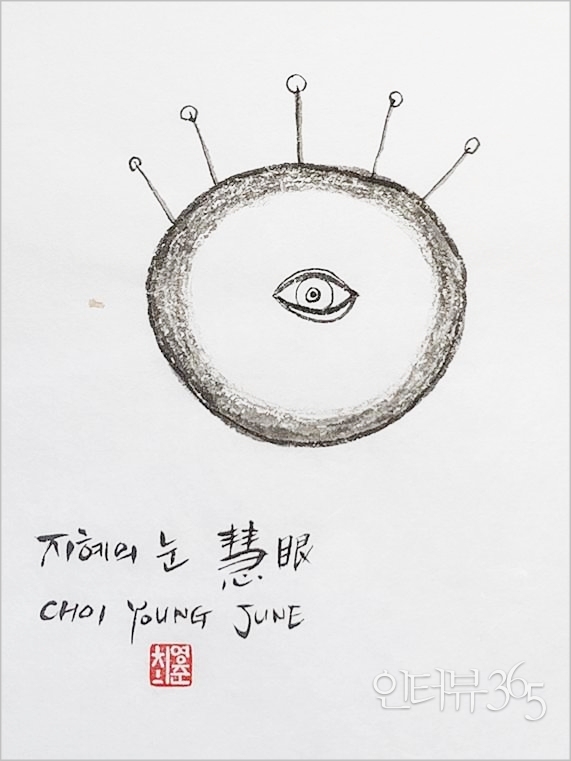 지혜의 눈 慧眼
CHOI YOUNG JUNE
최영준
인터뷰365